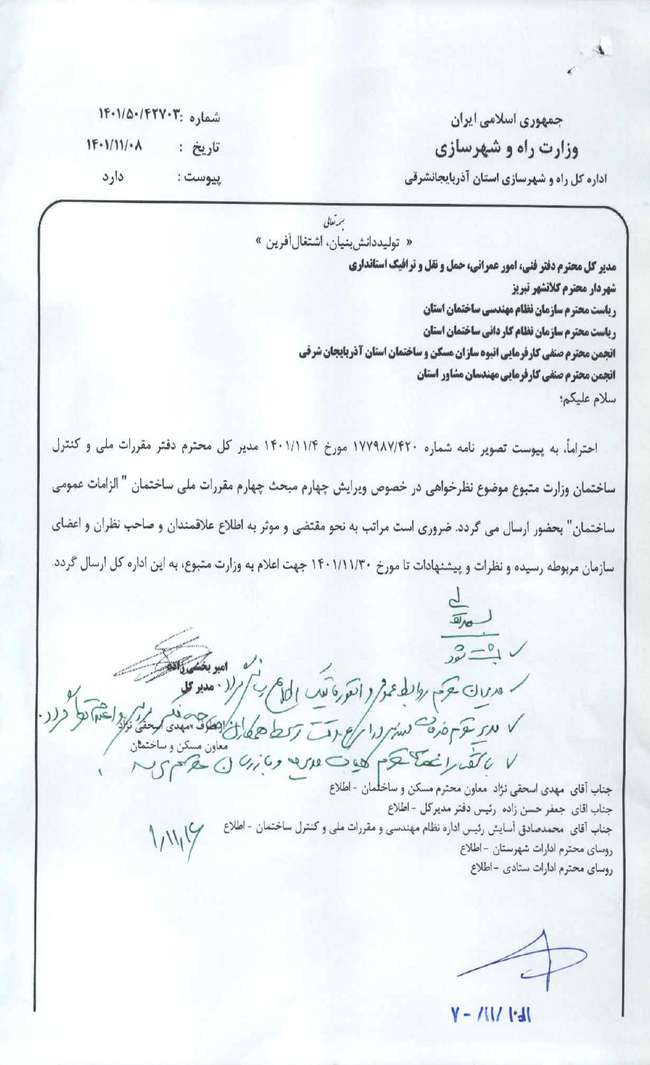 جمهوری اسلامی ایران
وزارت راه و شهرسازی
اداره کل راه و شهرسازی استان آذربایجانشرقی
شماره :۱۴۰۱/۵۰/۴۲۷۰۳
تاریخ : ۱۴۰۱/۱۱/۰۸
پیوست : دارد
بسمه تعالی
« تولید،دانش‌بنیان، اشتغال‌آفرین »
مدیر کل محترم دفتر فنی، امور عمرانی، حمل و نقل و ترافیک استانداری
شهردار محترم کلانشهر تبریز
ریاست محترم سازمان نظام مهندسی ساختمان استان
ریاست محترم سازمان نظام کاردانی ساختمان استان
انجمن محترم صنفی کارفرمایی انبوه سازان مسکن و ساختمان استان آذربایجان شرقی
انجمن محترم صنفی کارفرمایی مهندسان مشاور استان
سلام علیکم؛
احتراماً، به پیوست تصویر نامه شماره ۱۷۷۹۸۷/۴۲۰ مورخ ۱۴۰۱/۱۱/۴ مدیر کل محترم دفتر مقررات ملی و کنترل
ساختمان وزارت متبوع موضوع نظرخواهی در خصوص ویرایش چهارم مبحث چهارم مقررات ملی ساختمان " الزامات عمومی
ساختمان" بحضور ارسال می گردد. ضروری است مراتب به نحو مقتضی و موثر به اطلاع علاقمندان و صاحب نظران و اعضای
سازمان مربوطه رسیده و نظرات و پیشنهادات تا مورخ ۱۴۰۱/۱۱/۳۰ جهت اعلام به وزارت متبوع، به این اداره کل ارسال گردد.
ثبت شود
امیر بخشی زاده
مدیر کل
مدیران محترم روابط عمومی و انفورماتیک اطلاع رسانی گردد
از طرف مهدی اسحقی نژاد
معاون مسکن و ساختمان
جناب آقای مهدی اسحقی نژاد معاون محترم مسکن و ساختمان - اطلاع
جناب اقای جعفر حسن زاده رئیس دفتر مدیرکل - اطلاع
جناب آقای محمدصادق آسایش رئیس اداره نظام مهندسی و مقررات ملی و کنترل ساختمان - اطلاع
روسای محترم ادارات شهرستان - اطلاع
روسای محترم ادارات ستادی - اطلاع
۱۴۰۱ /۱۱/ -۸